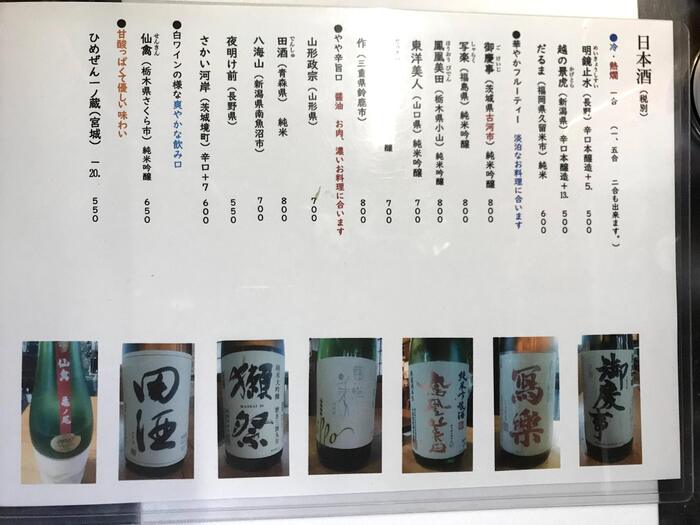 日本酒（税別）
●冷・熱燗 一合 （一、五合 二合も出来ます。）
めいきょうしすい
明鏡止水（長野）辛口本醸造＋5. 500
かげとら
越の景虎（新潟県）辛口本醸造＋13. 500
だるま（福岡県久留米市）純米 600
●華やかフルーティー 淡泊なお料理に合います
ご けいじ
御慶事（茨城県古河市）純米吟醸 800
しゃらく
写楽（福島県）純米吟醸 800
ほうおう びでん
鳳凰美田（栃木県小山）純米吟醸 800
東洋美人（山口県）純米吟醸 700
醸 700
作（三重県鈴鹿市） 800
●やや辛旨口 醤油 お肉、濃いお料理に合います
山形政宗（山形県） 700
でんしゅ
田酒（青森県） 純米 800
八海山（新潟県南魚沼市） 700
夜明け前（長野県） 550
さかい河岸（茨城境町）辛口＋7 600
●白ワインの様な爽やかな飲み口
せんきん
仙禽（栃木県さくら市）純米吟醸 650
●甘酸っぱくて優しい味わい
ひめぜん一ノ蔵（宮城）－20. 550
仙禽
亀ノ尾
田酒
獺祭
純米大吟醸
純米吟醸酒
鳳凰美田
寫樂
御慶事